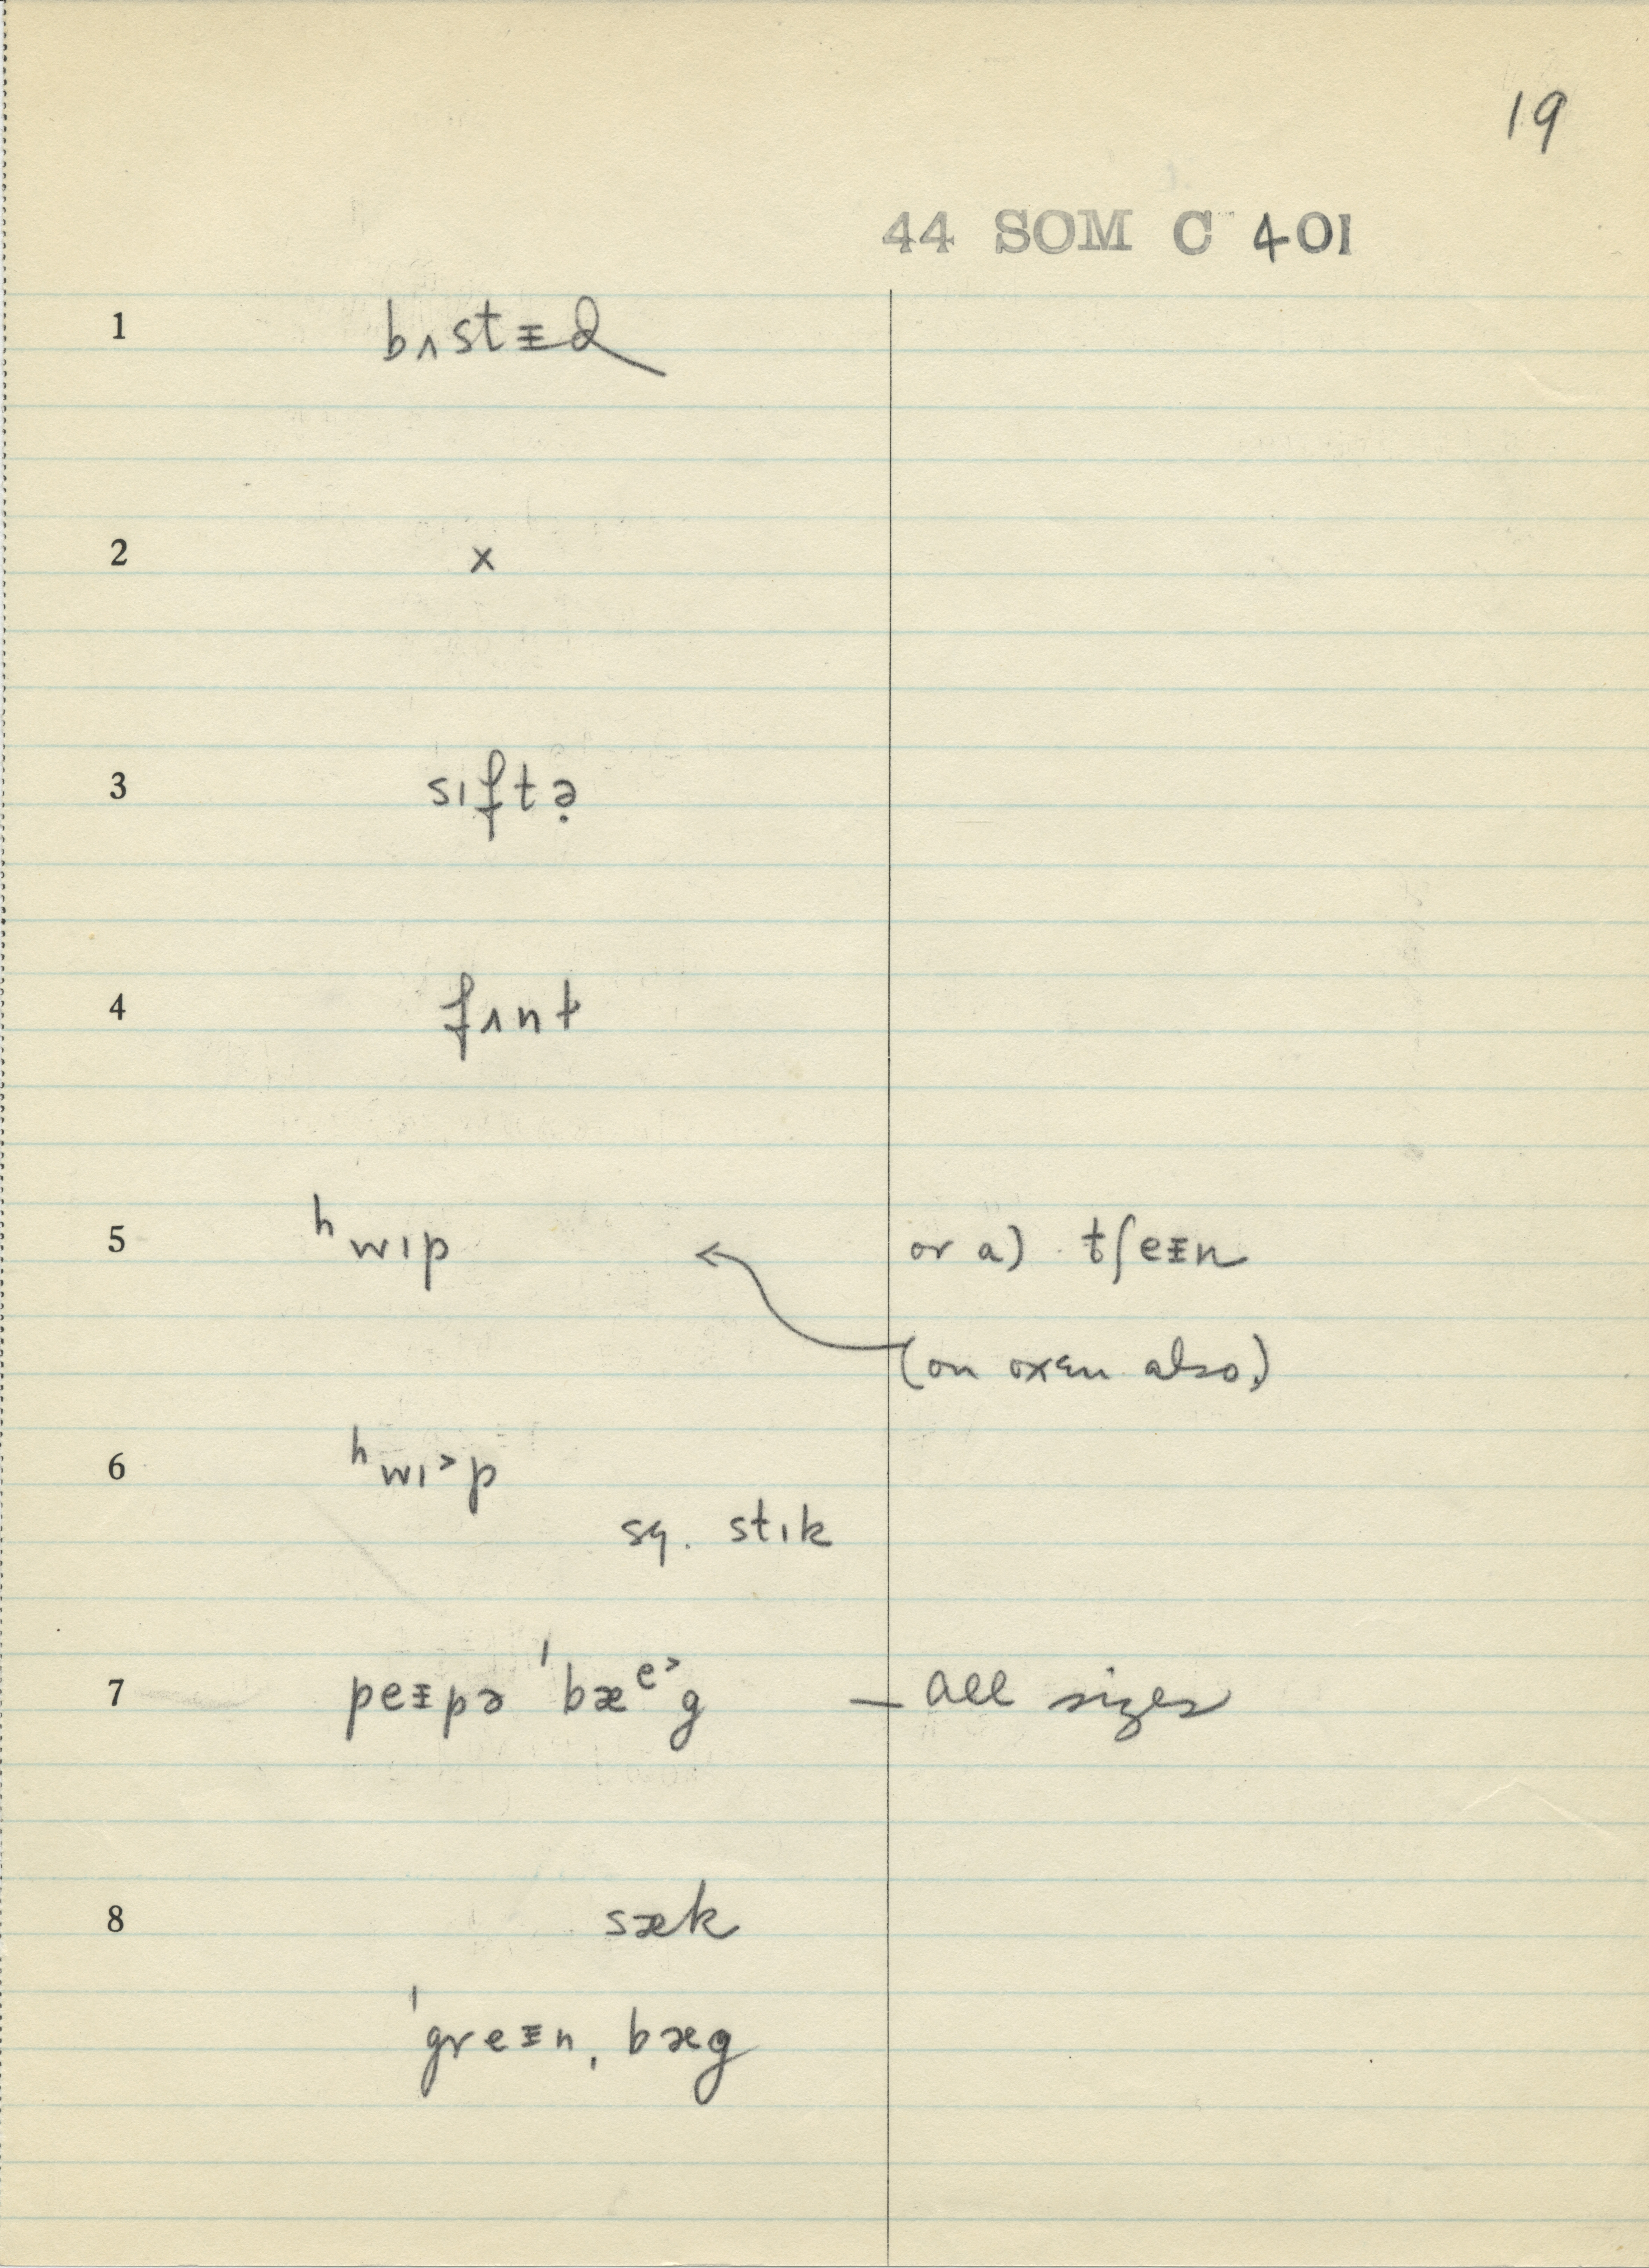 19
44 SOM C 401
1 bʌstᵻd
2 x
3 sɪftə̣
4 fʌnt
5 ʰwɪp or a) tʃeᵻn
(on oxen also)
6 ʰwɪ˃p
sq. stɪk
7 peᵻpə ˈbæᵉ˃g — all sizes
8 sæk
ˈgreᵻnˌbæg